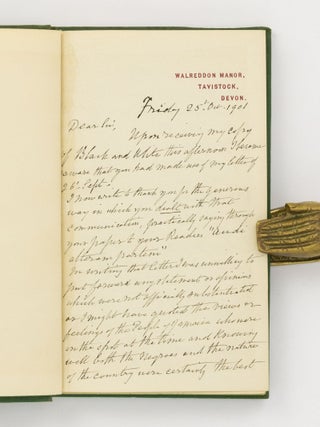 WALREDDON MANOR,
TAVISTOCK,
DEVON.
Friday 25th Oct. 1901
Dear Sir,
Upon receiving my copy
of Black and White this afternoon I became
aware that you had made use of my letter of
26th Sept.
I now write to thank you for the generous
way in which you dealt with that
communication, practically saying through
your paper to your Readers "audi
alteram partem"
In writing that letter I was unwilling to
put forward any statement or opinions
which were not officially substantiated
or I might have quoted the views or
feelings of the People of Jamaica who were
on the spot at the time and knowing
well both the Negroes and the nature
of the country were certainly the best